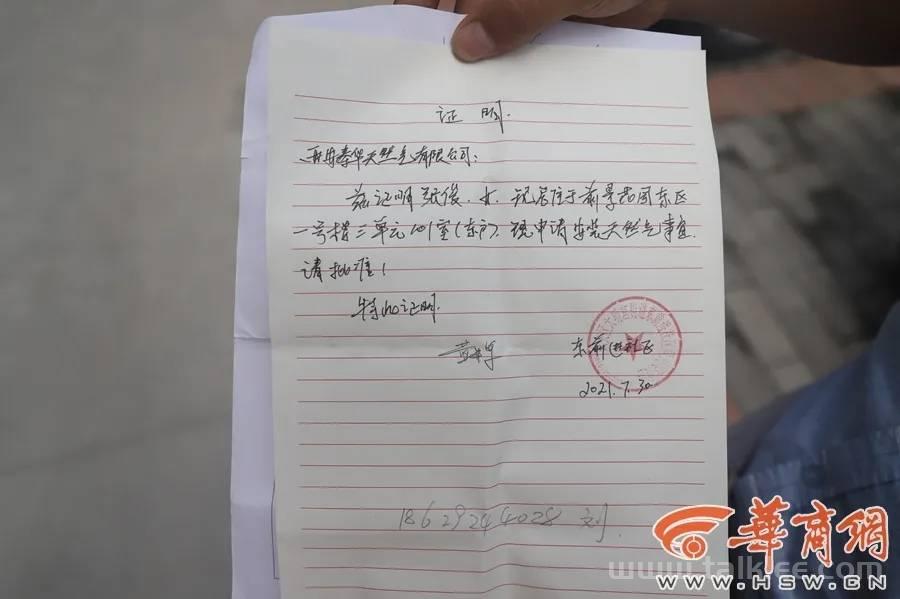 证 明.
西安秦华天然气有限公司:
兹证明张俊、女、现居住于前景花园东区
一号楼三单元101室(东户)、现申请安装天然气事宜.
请批准!
特此证明.
东前进社区
2021.7.30
18629244028 刘
華商網
www.talklee.com
WWW.HSW.CN